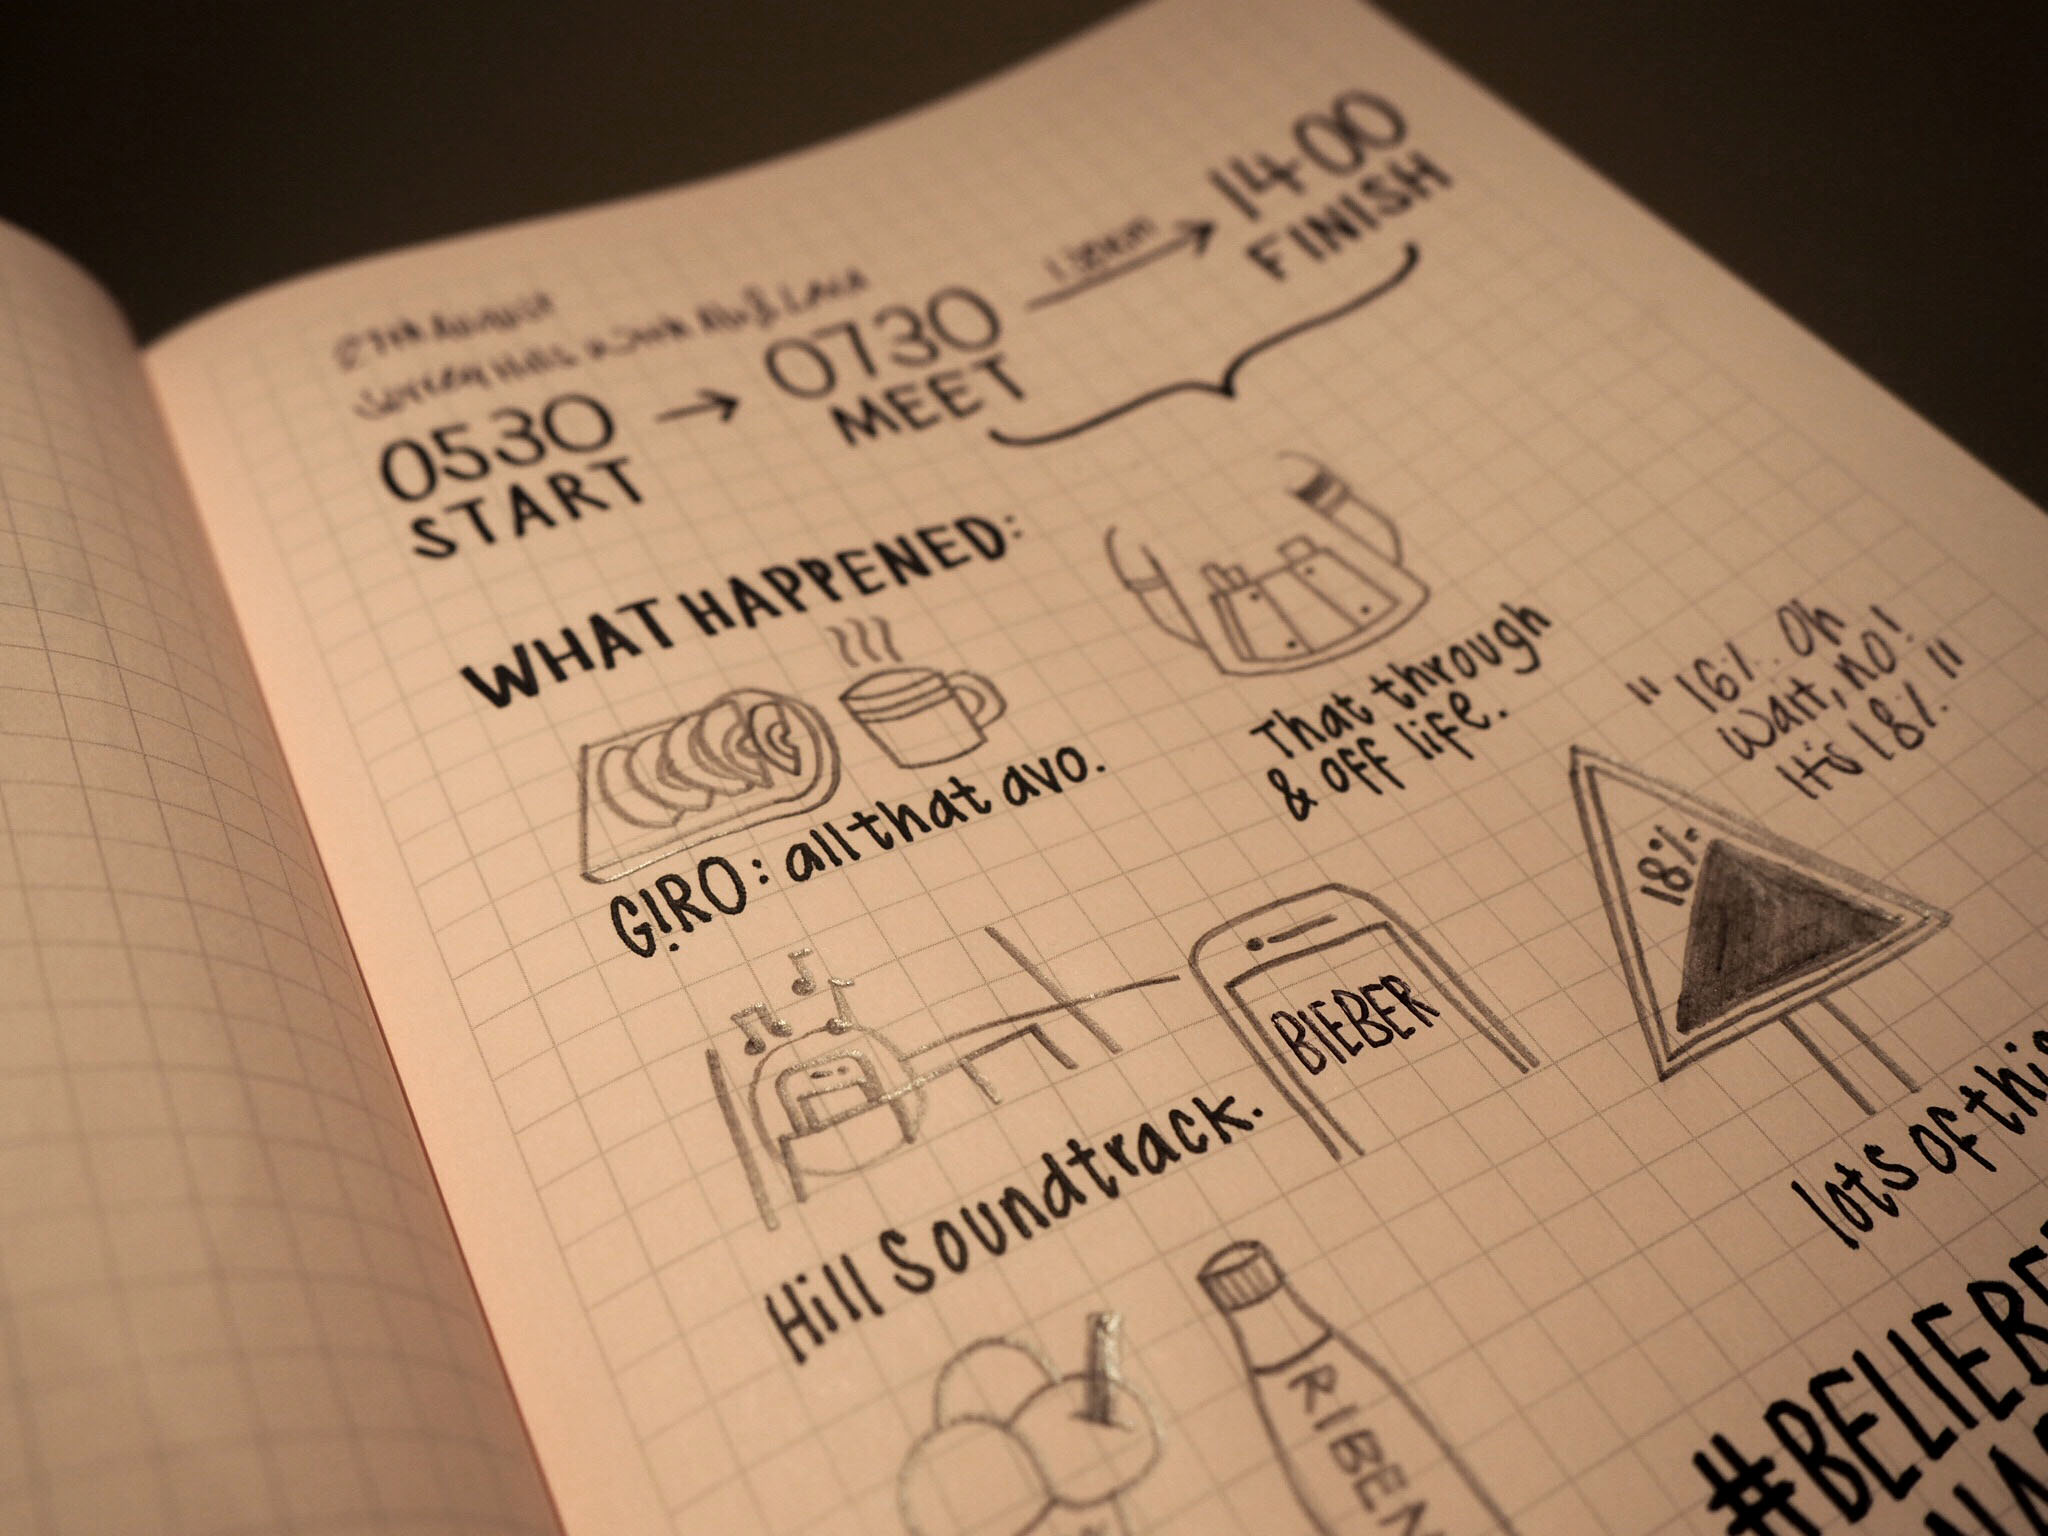 27th August
Surrey Hills with
0530 → 0730 → 14·00
START MEET FINISH
WHAT HAPPENED:
GIRO: all that avo.
That through
& off life.
"16%.. Oh
wait, no!
It's 18%."
18%
lots of this
BIEBER
Hill Soundtrack.
RIBEN
#BELIEBE